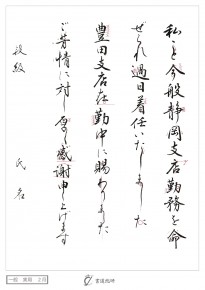 私こと今般静岡支店勤務を命
ぜられ過日着任いたしました
豊田支店在勤中に賜わりました
ご芳情に対し厚く感謝申し上げます
段級 氏名
一般 実用 2月